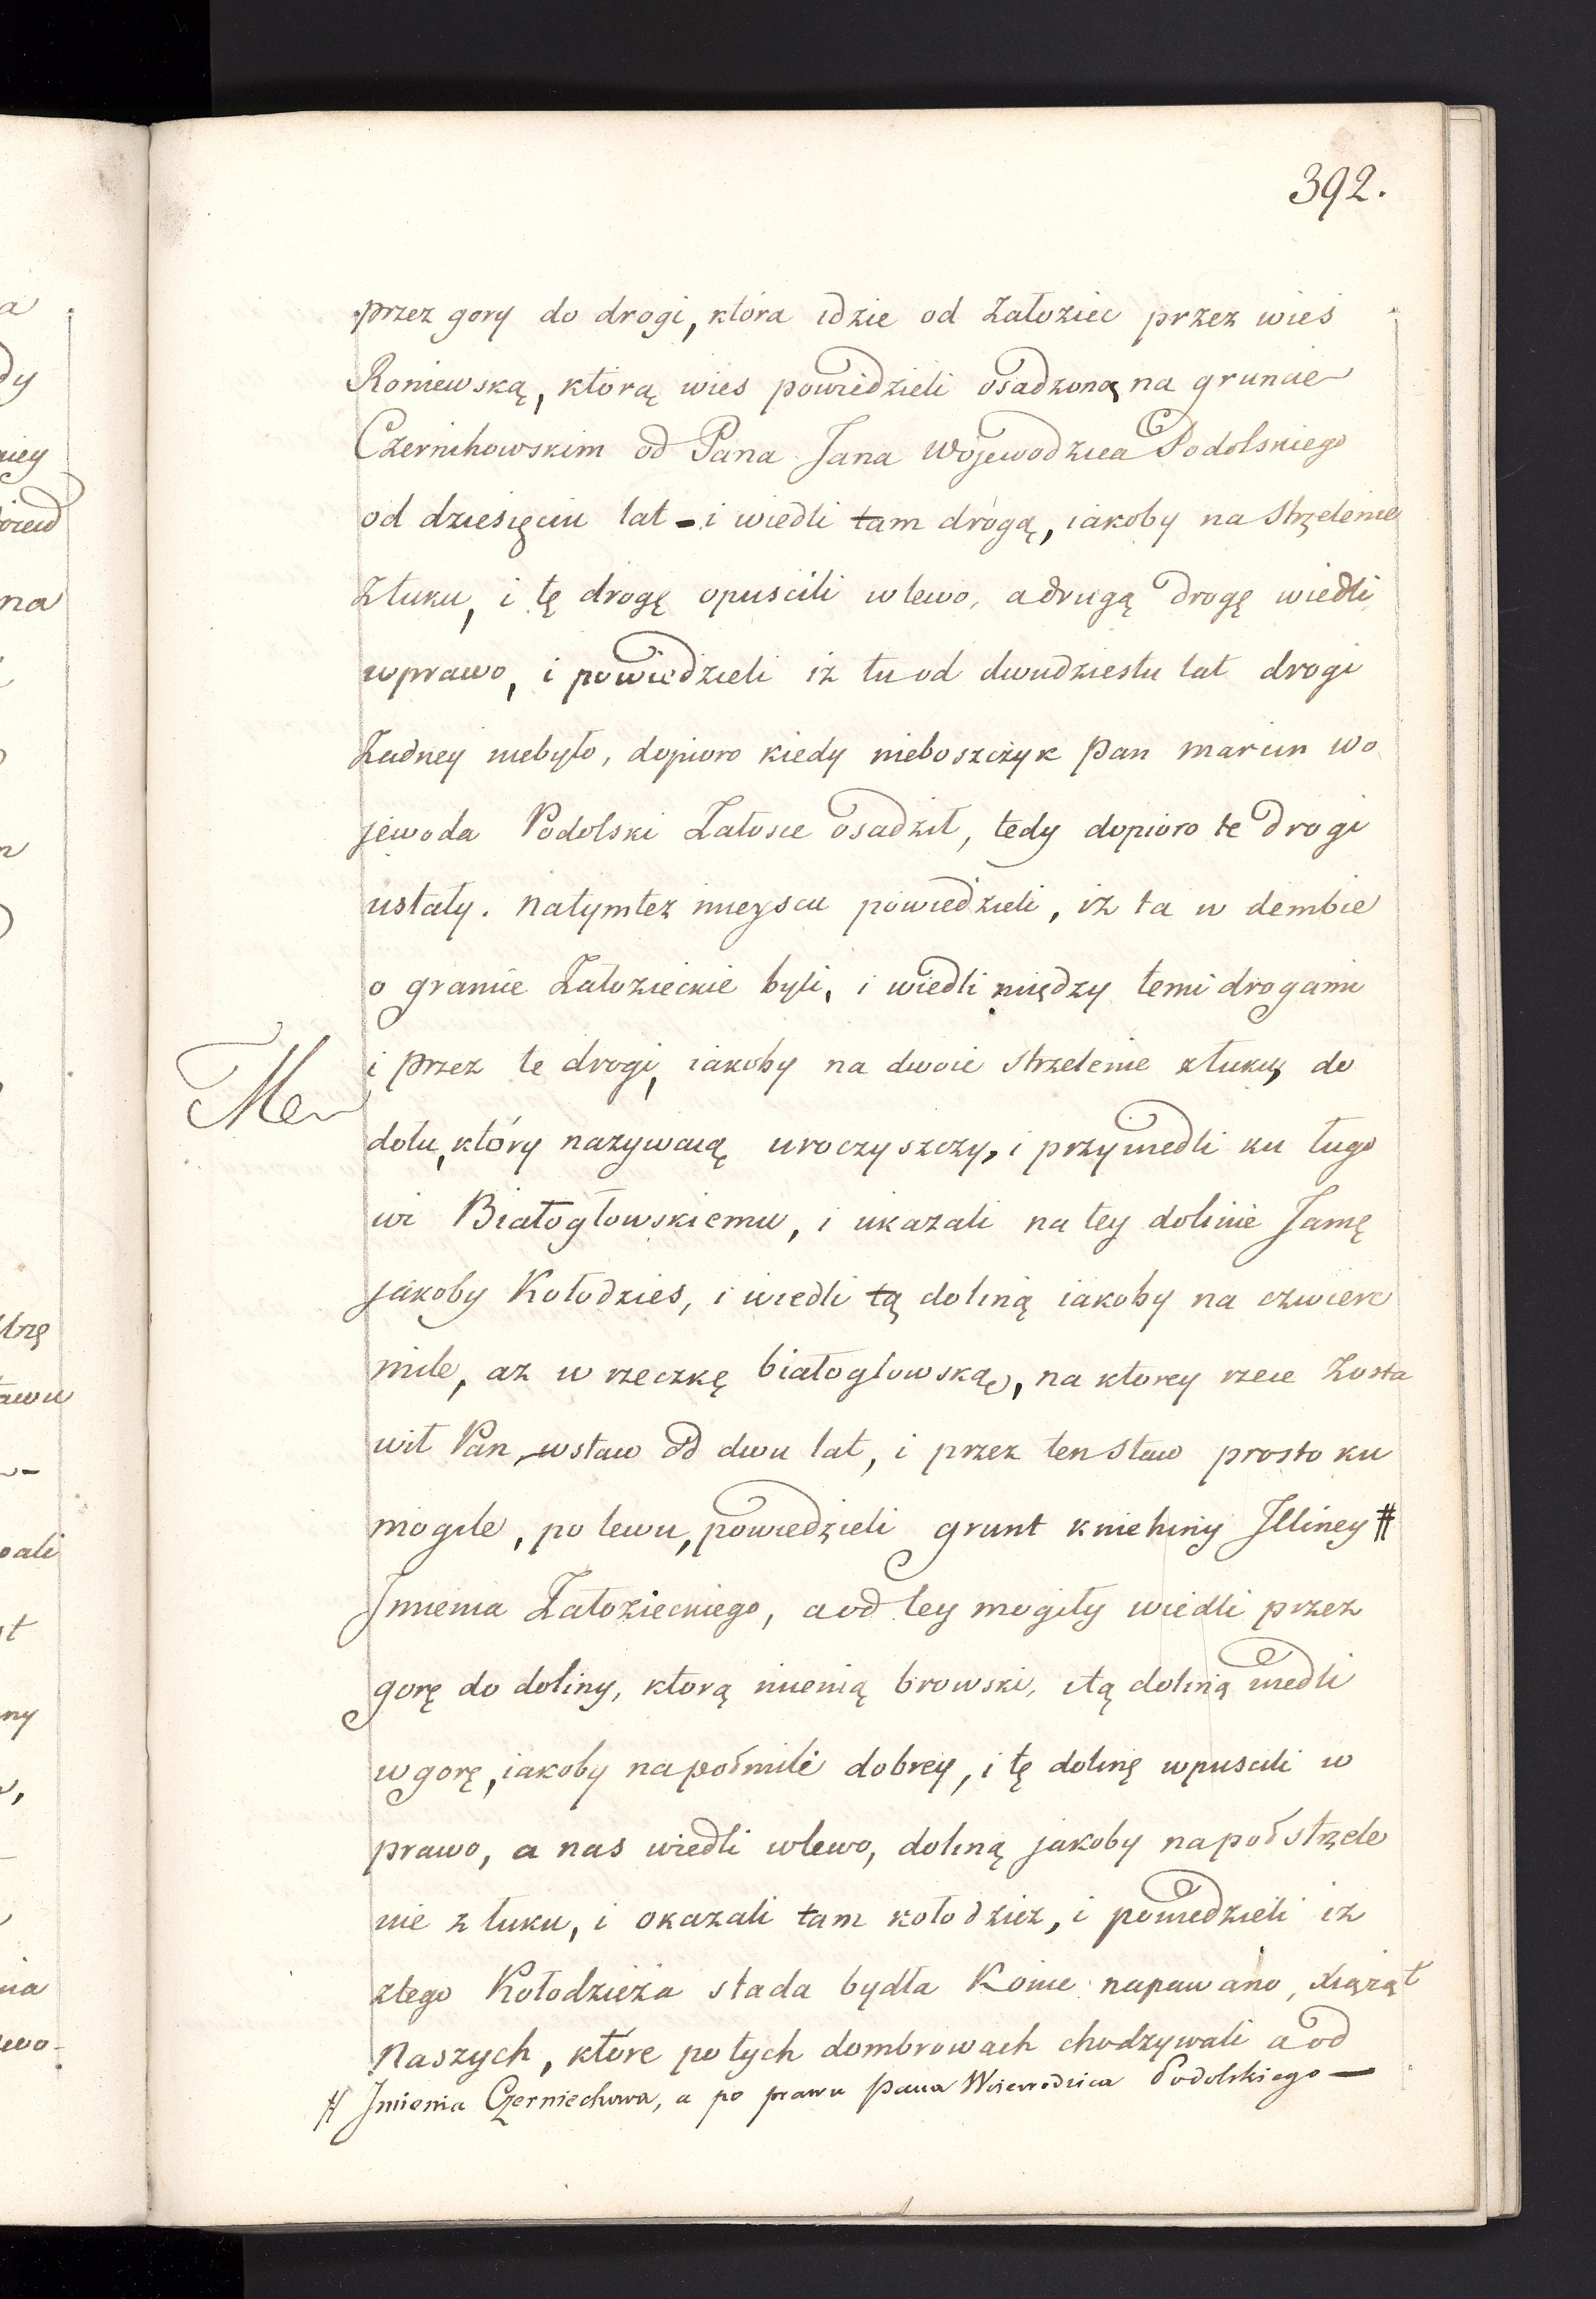 392.
przez gory do drogi, która idzie od Załoziec przez wieś
Roniewską, którą wies powiedzieli osadzoną na gruncie
Czernichowskim od Pana Jana Wojewodzica Podolskiego
od dziesięciu lat - i wiedli tam drógą, iakoby na Strzelenie
Złuku, i tę drogę opuscili w lewo, a drugą drogę wiedli
wprawo, i powiedzieli iż tu od dwudziestu lat drogi
Żadney niebyło, dopioro kiedy nieboszczyk Pan marcin wo
jewoda Podolski Załosce osadził, tedy dopioro te drogi
ustały. natymtez mieyscu powiedzieli, iż ta w dembie
o granice Załozieckie byli, i wiedli między temi drogami
i przez te drogi, iakoby na dwoie strzelenie złuku, do
dołu, który nazywaią uroczyszczy, i przywiedli ku ługo
wi Białogłowskiemu, i ukazali na tey dolinie Jamę
jakoby Kołodzies, i wiedli tą doliną iakoby na czwierc
mile, az w rzeczkę białoglowską, na ktorey rzece Zosta
wił Pan wstaw od dwu lat, i przez ten Staw prosto ku
mogile, po lewu, powiedzieli grunt kniehiny Jlliney #
Jmienia Załozieckiego, a od tey mogiły wiedli przez
gorę do doliny, ktorą mienią browski, itą doliną wiedli
w gorę, iakoby na połmili dobrey, i tę dolinę wpuscili w
prawo, a nas wiedli wlewo, doliną jakoby na poł strzele
nie z łuku, i okazali tam kołodziez, i powiedzieli iz
ztego Kołodzieża stada bydła Konie napawano, xiążąt
Naszych, które po tych dombrowach chodzywali a od
# Jmienia Czerniechowa, a po prawu Pana Woiewodzica Podolskiego —